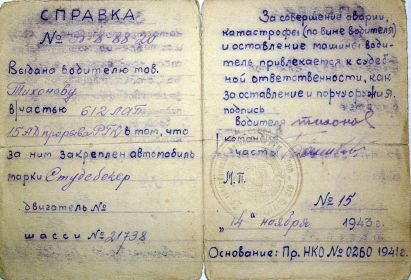 СПРАВКА
№ Э-8-83-20
Выдана водителю тов.
Тихонову
в/частью 612 ЛАП
15 АД прорыва РГК в том, что
за ним закреплен автомобиль
марки Студебекер
двигатель №
шасси № 21738
За совершение аварии,
катастрофы (по вине водителя)
и оставление машины води-
тель привлекается к судеб-
ной ответственности, как
за оставление и порчу оружия.
подпись
водителя Тихонов
команд
часть
М.П.
№ 15
"14" ноября 1943 г.
Основание: Пр. НКО № 0260 1941 г.